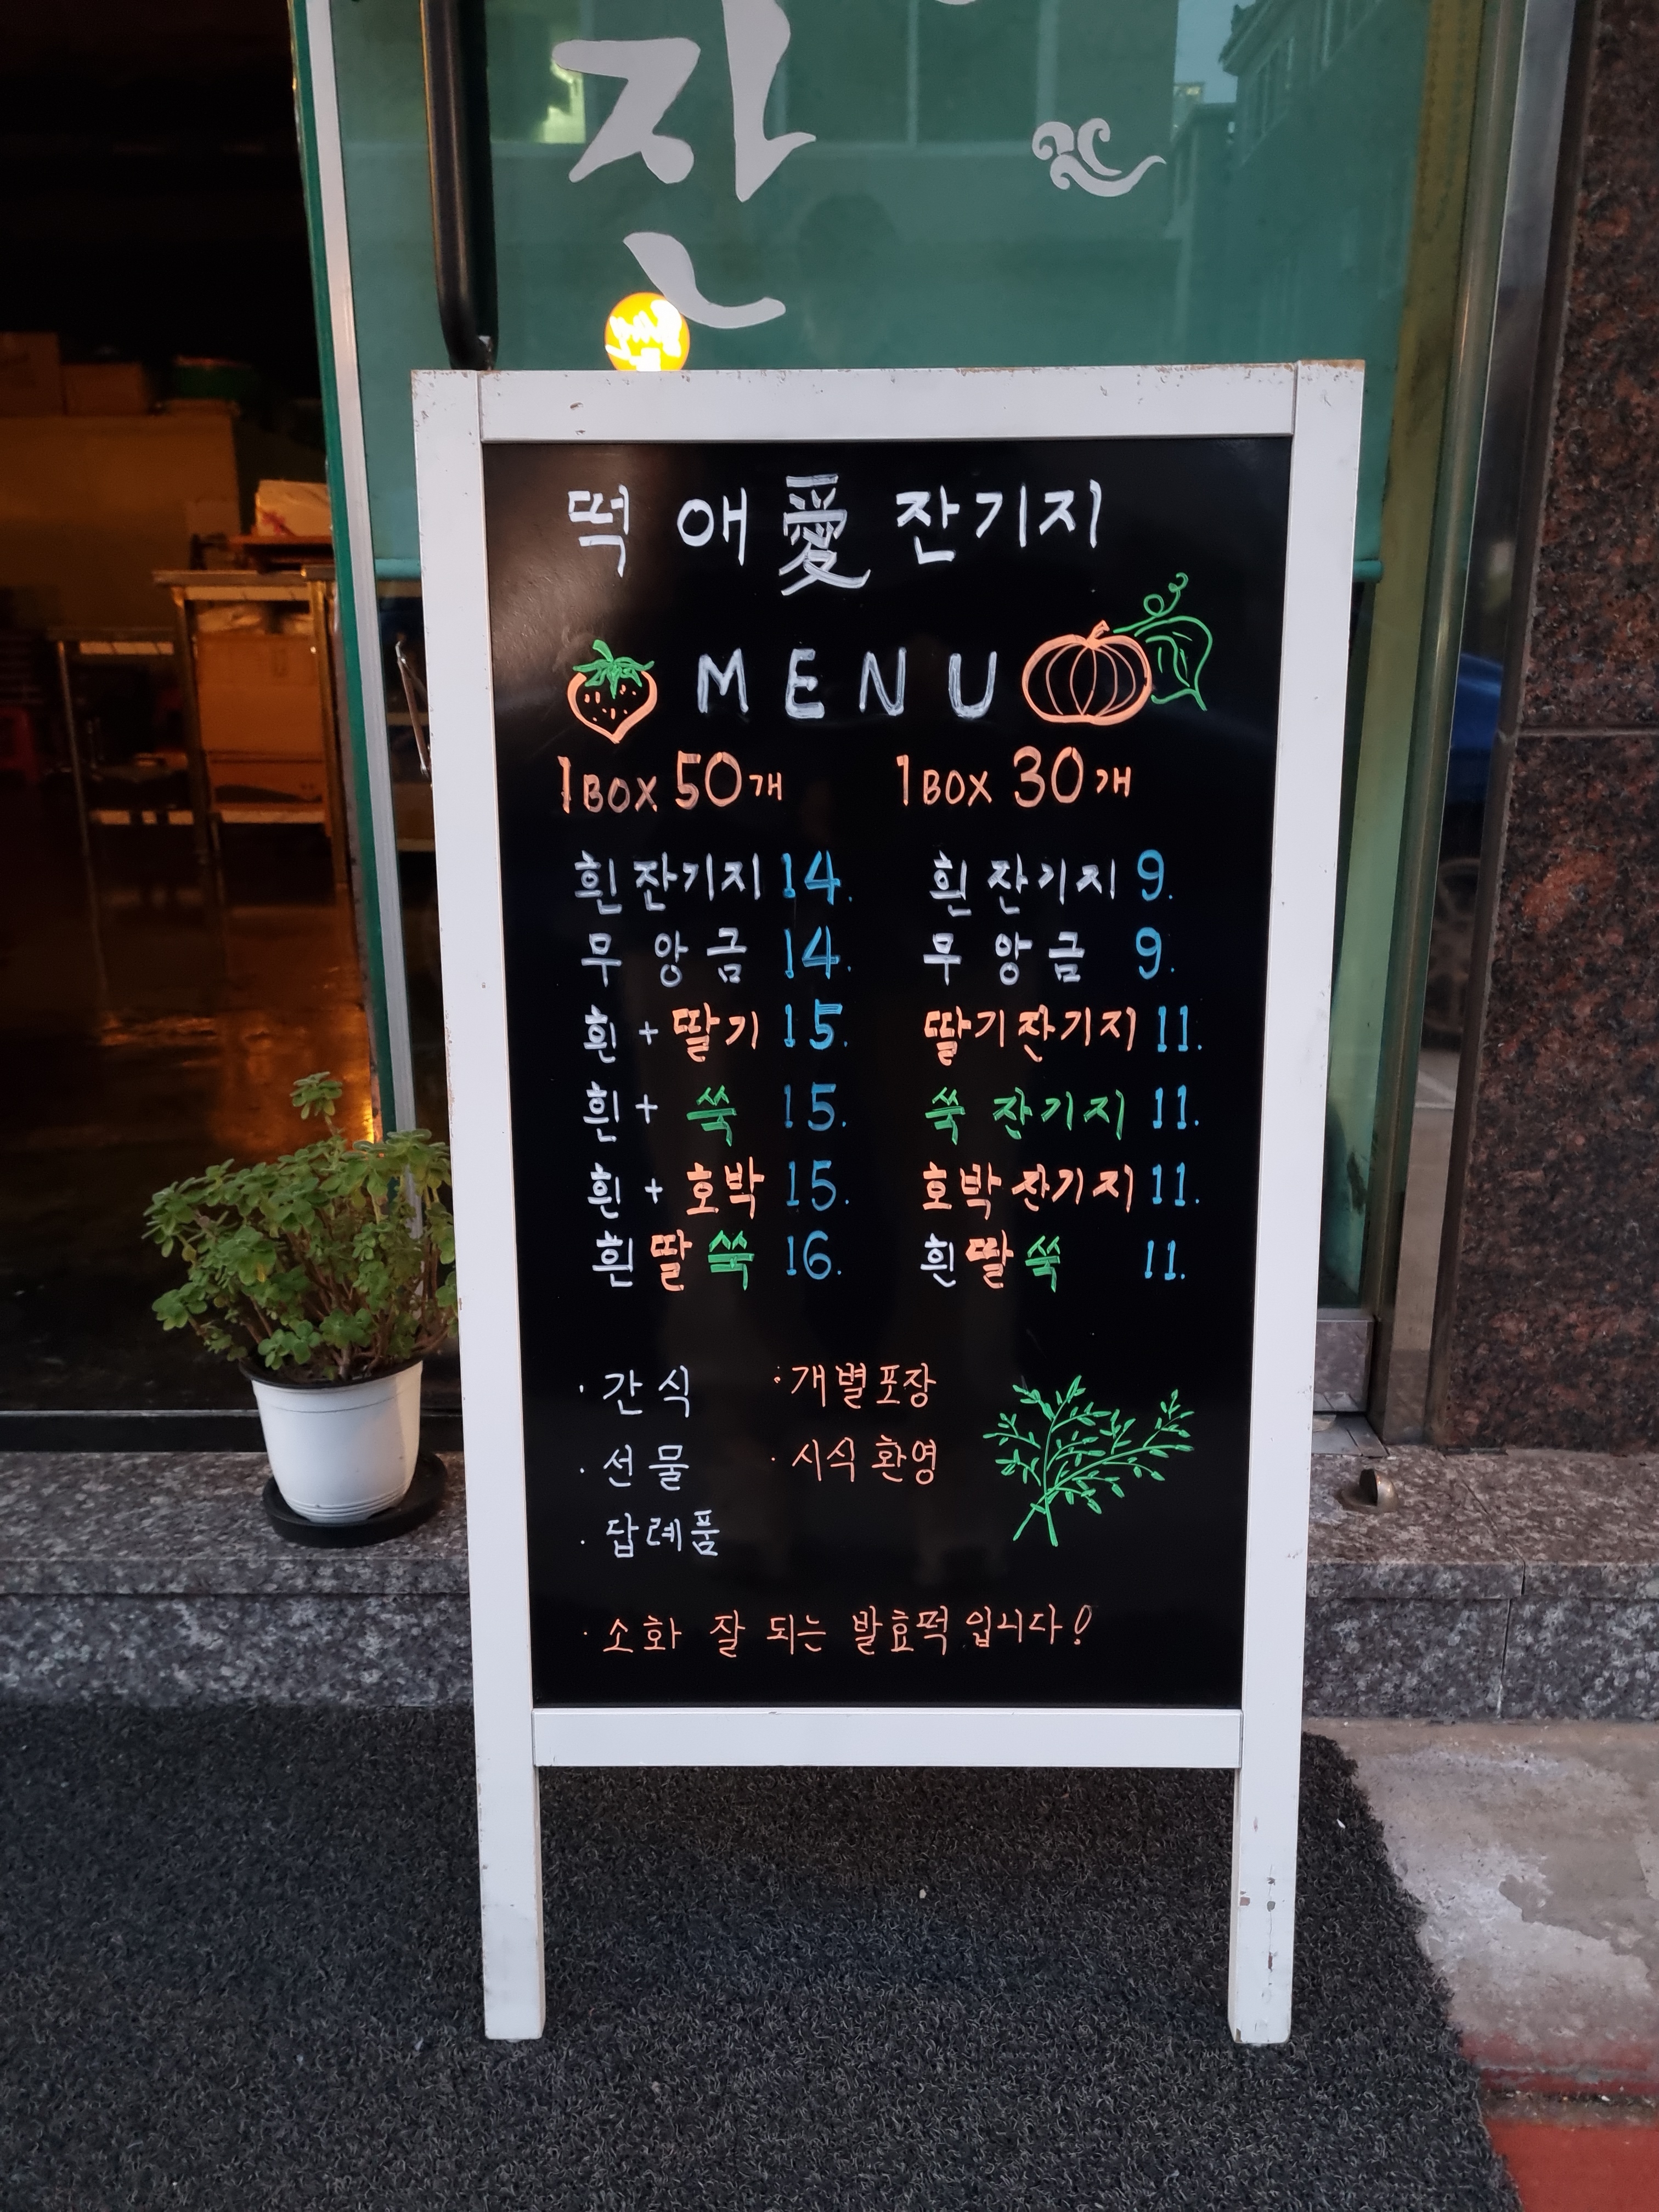 잔
떡 애愛 잔기지
MENU
1BOX 50개
흰잔기지 14.
무앙금 14.
흰+딸기 15.
흰+쑥 15.
흰+호박 15.
흰딸쑥 16.
1BOX 30개
흰잔기지 9.
무앙금 9.
딸기잔기지 11.
쑥잔기지 11.
호박잔기지 11.
흰딸쑥 11.
· 간식
· 선물
· 답례품
· 개별포장
· 시식환영
· 소화 잘 되는 발효떡입니다!